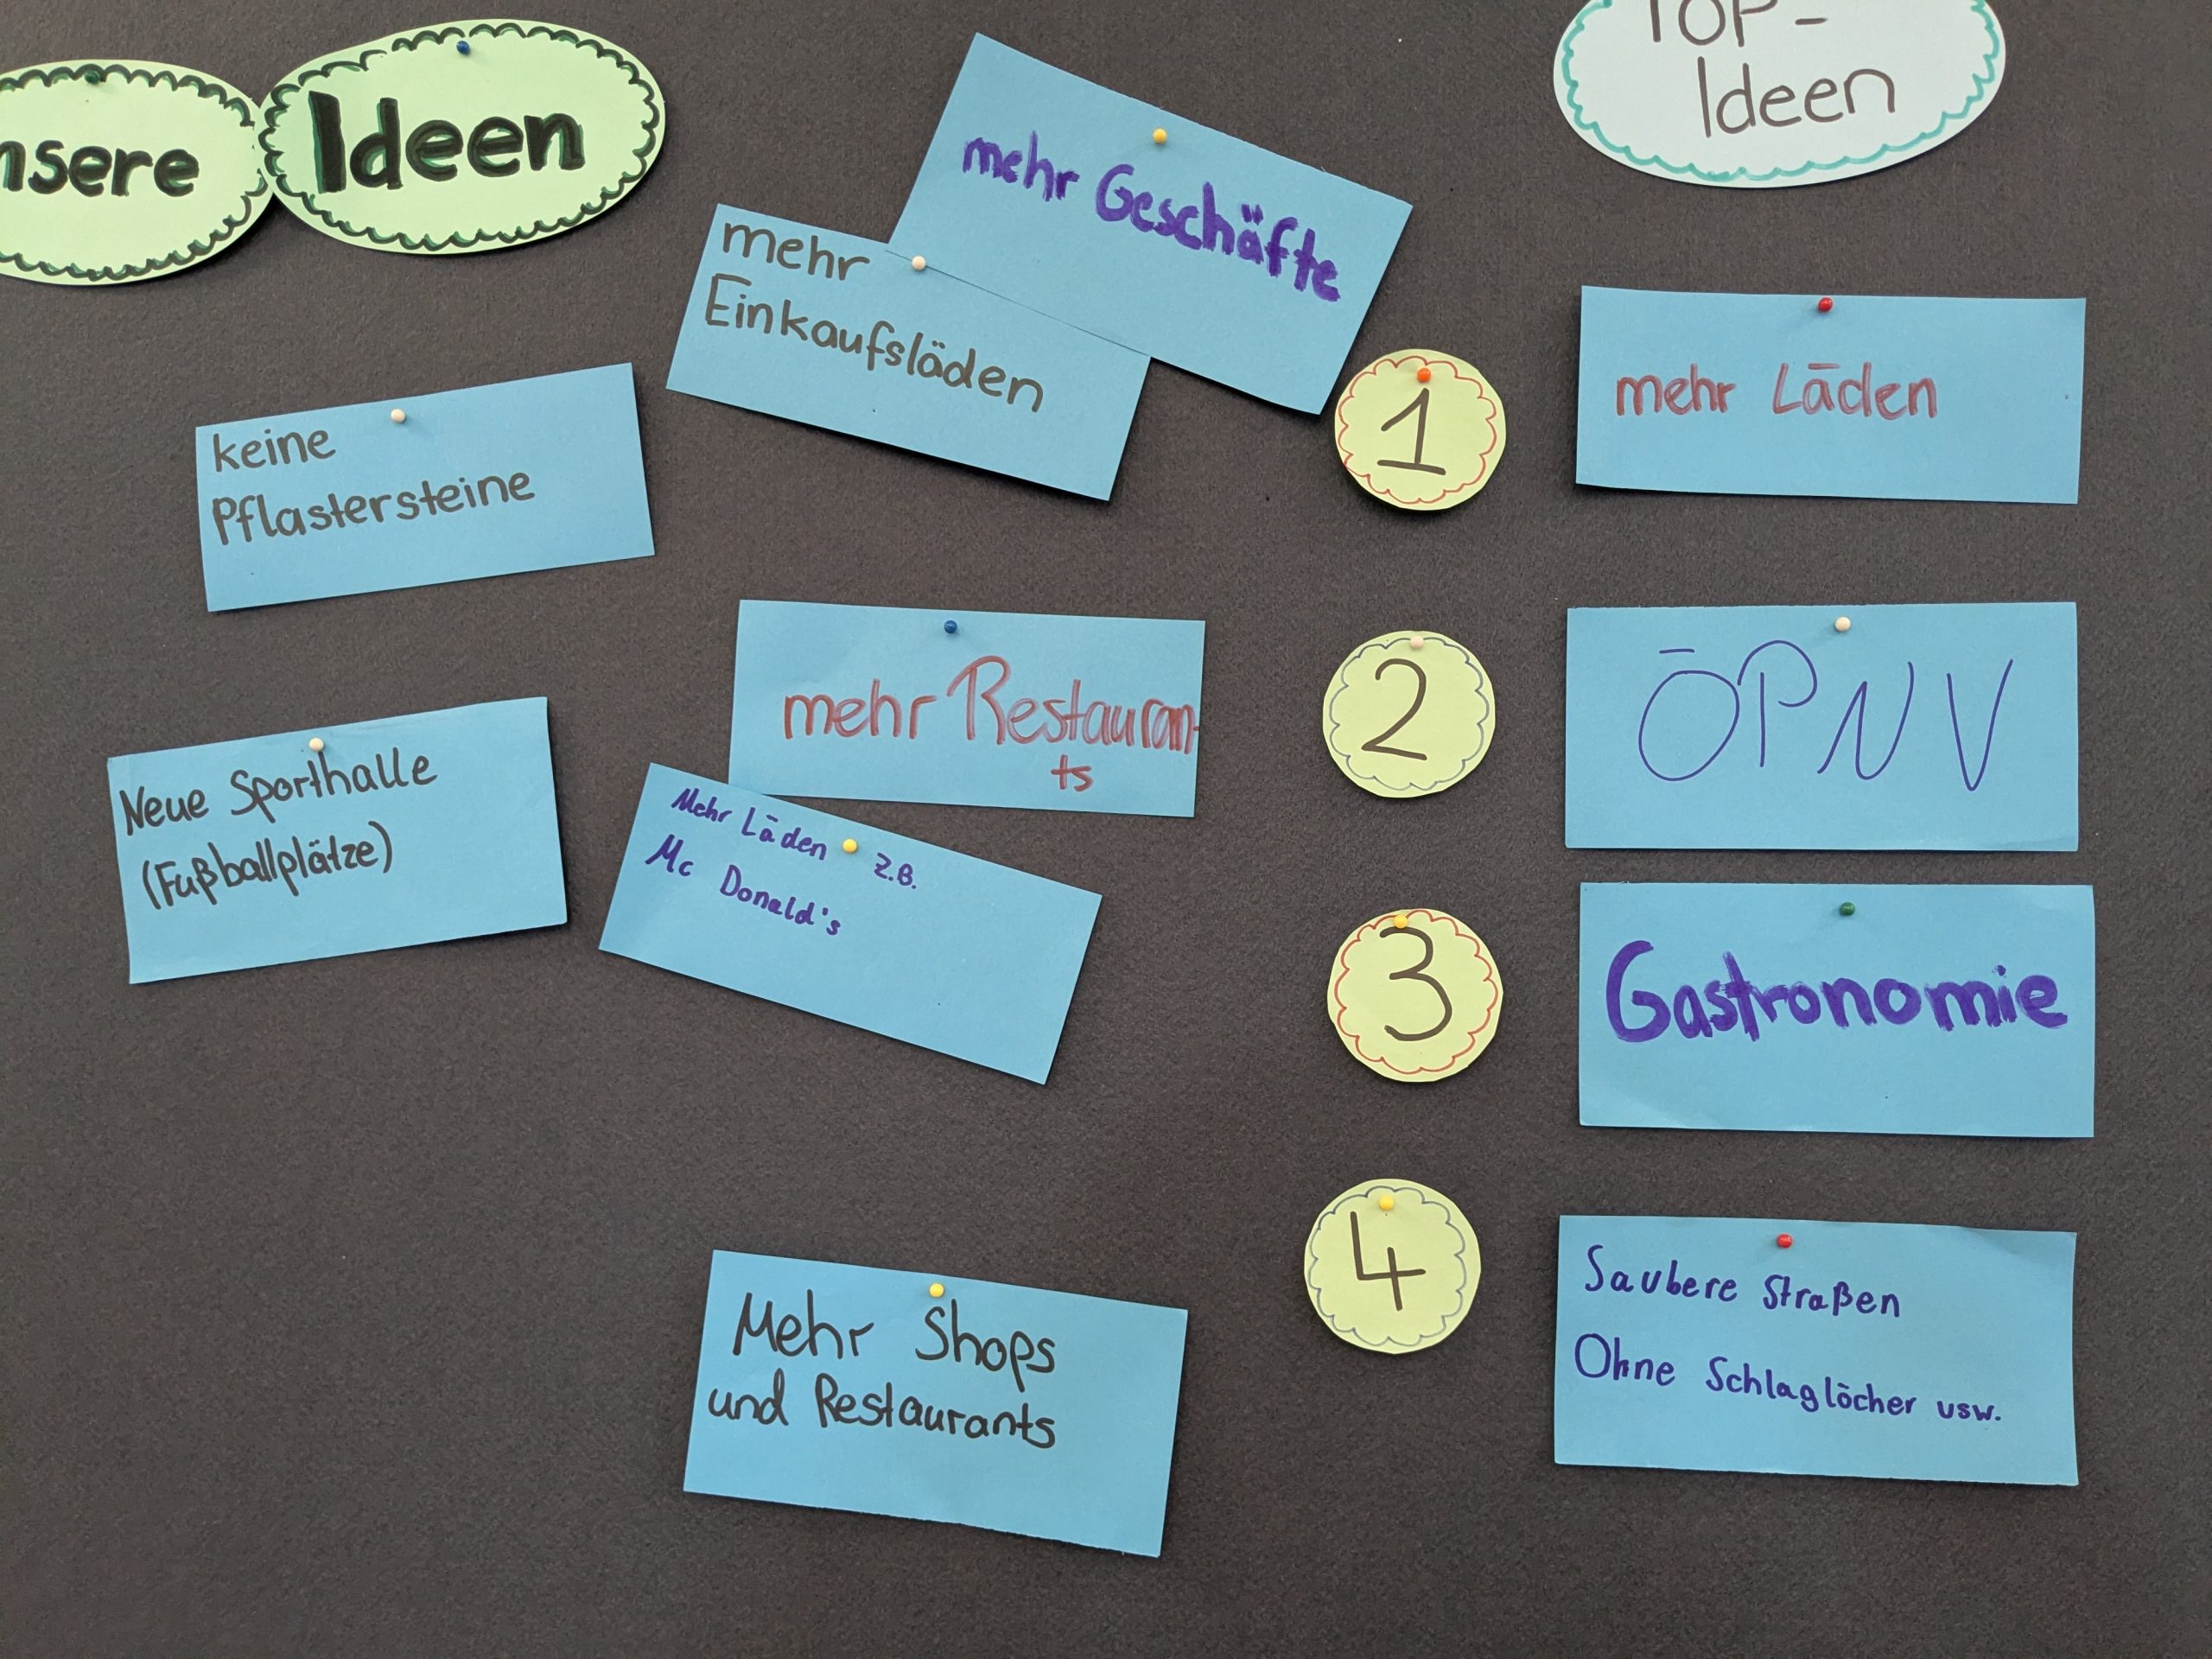 nsere
Ideen
mehr Geschäfte
mehr
Einkaufsläden
keine
Pflastersteine
mehr Restauran-
ts
Neue Sporthalle
(Fußballplätze)
Mehr Läden z.B.
Mc Donald's
Mehr Shops
und Restaurants
TOP-
Ideen
1
mehr Läden
2
ÖPNV
3
Gastronomie
4
Saubere Straßen
Ohne Schlaglöcher usw.